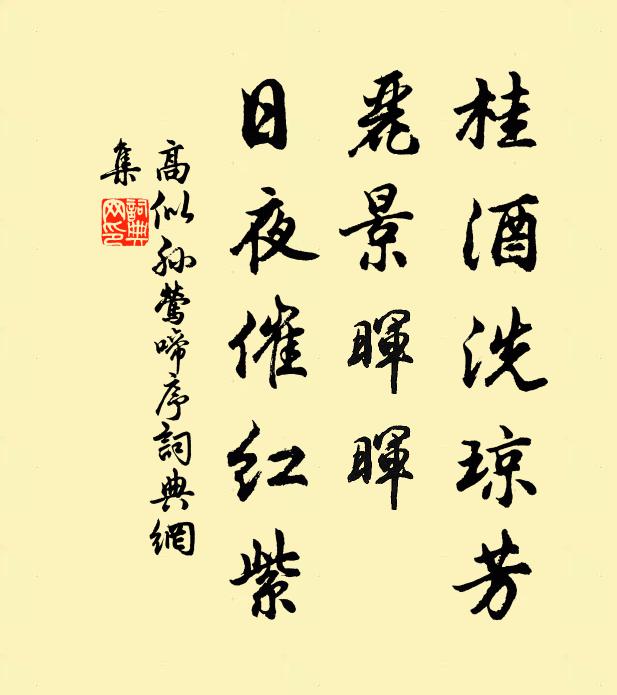 桂酒洗琼芳
麗景暉暉
日夜催红紫
高似孙鶯啼序詞典網
集
詞典
网印